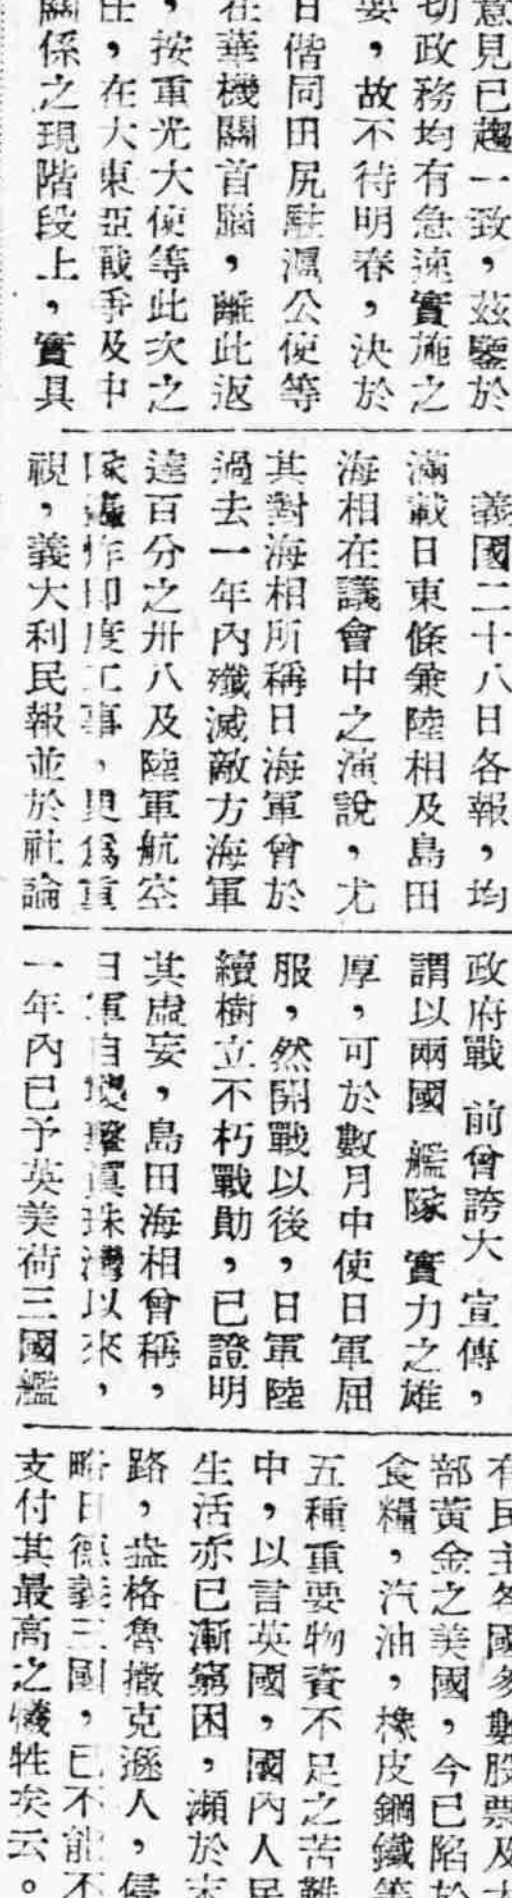 意見已趨一致，茲鑒於
切政務均有急速實施之
要，故不待明春，決於
日偕同田尻駐滬公使等
在華機關首腦，離此返
，按重光大使等此次之
任，在大東亞戰爭及中
關係之現階段上，實具
義國二十八日各報，均
滿載日東條兼陸相及島田
海相在議會中之演說，尤
其對海相所稱日海軍曾於
過去一年內殲滅敵方海軍
達百分之卅八及陸軍航空
隊轟炸印度工事，更為重
視，義大利民報並於社論
政府戰前曾誇大宣傳，
謂以兩國艦隊實力之雄
厚，可於數月中使日軍屈
服，然開戰以後，日軍陸
續樹立不朽戰勛，已證明
其虛妄，島田海相曾稱，
日軍自襲擊真珠灣以來，
一年內已予英美荷三國艦
有民主各國多數股票及大
部黃金之美國，今已陷於
食糧，汽油，橡皮鋼鐵等
五種重要物資不足之苦難
中，以言英國，國內人民
生活亦已漸窮困，瀕於末
路，盎格魯撒克遜人，侵
略日德義三國，已不能不
支付其最高之犧牲矣云。